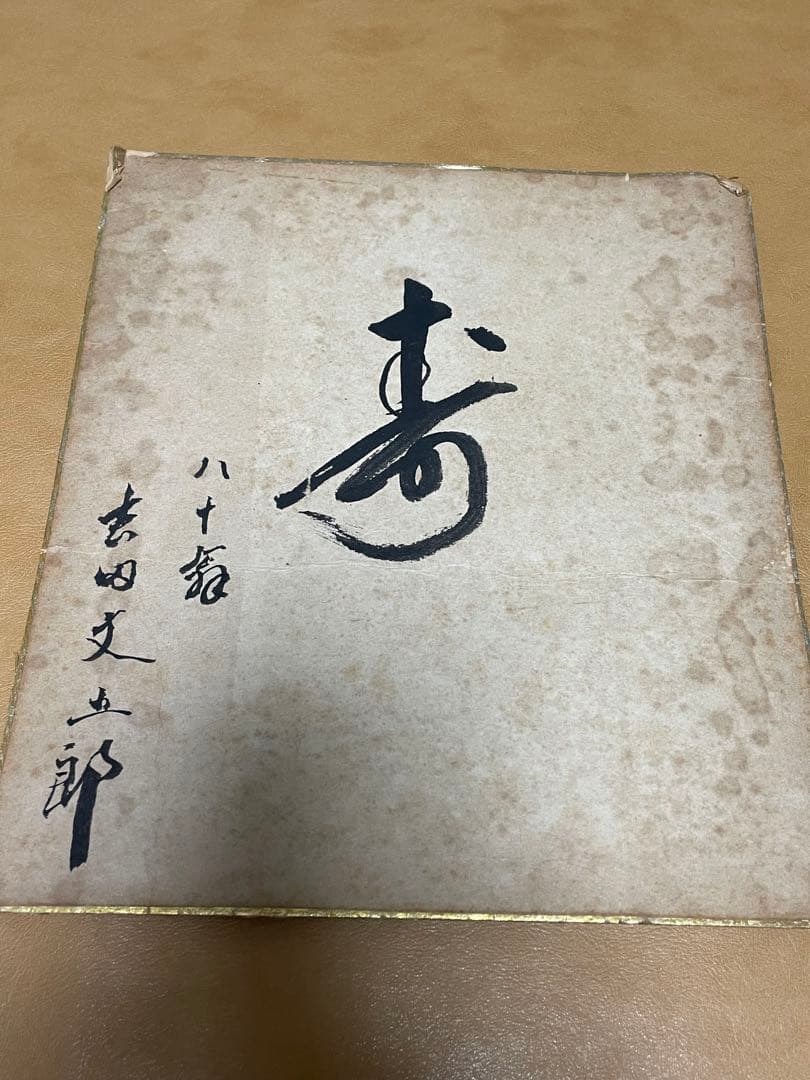 寿
八十翁
吉田文五郎